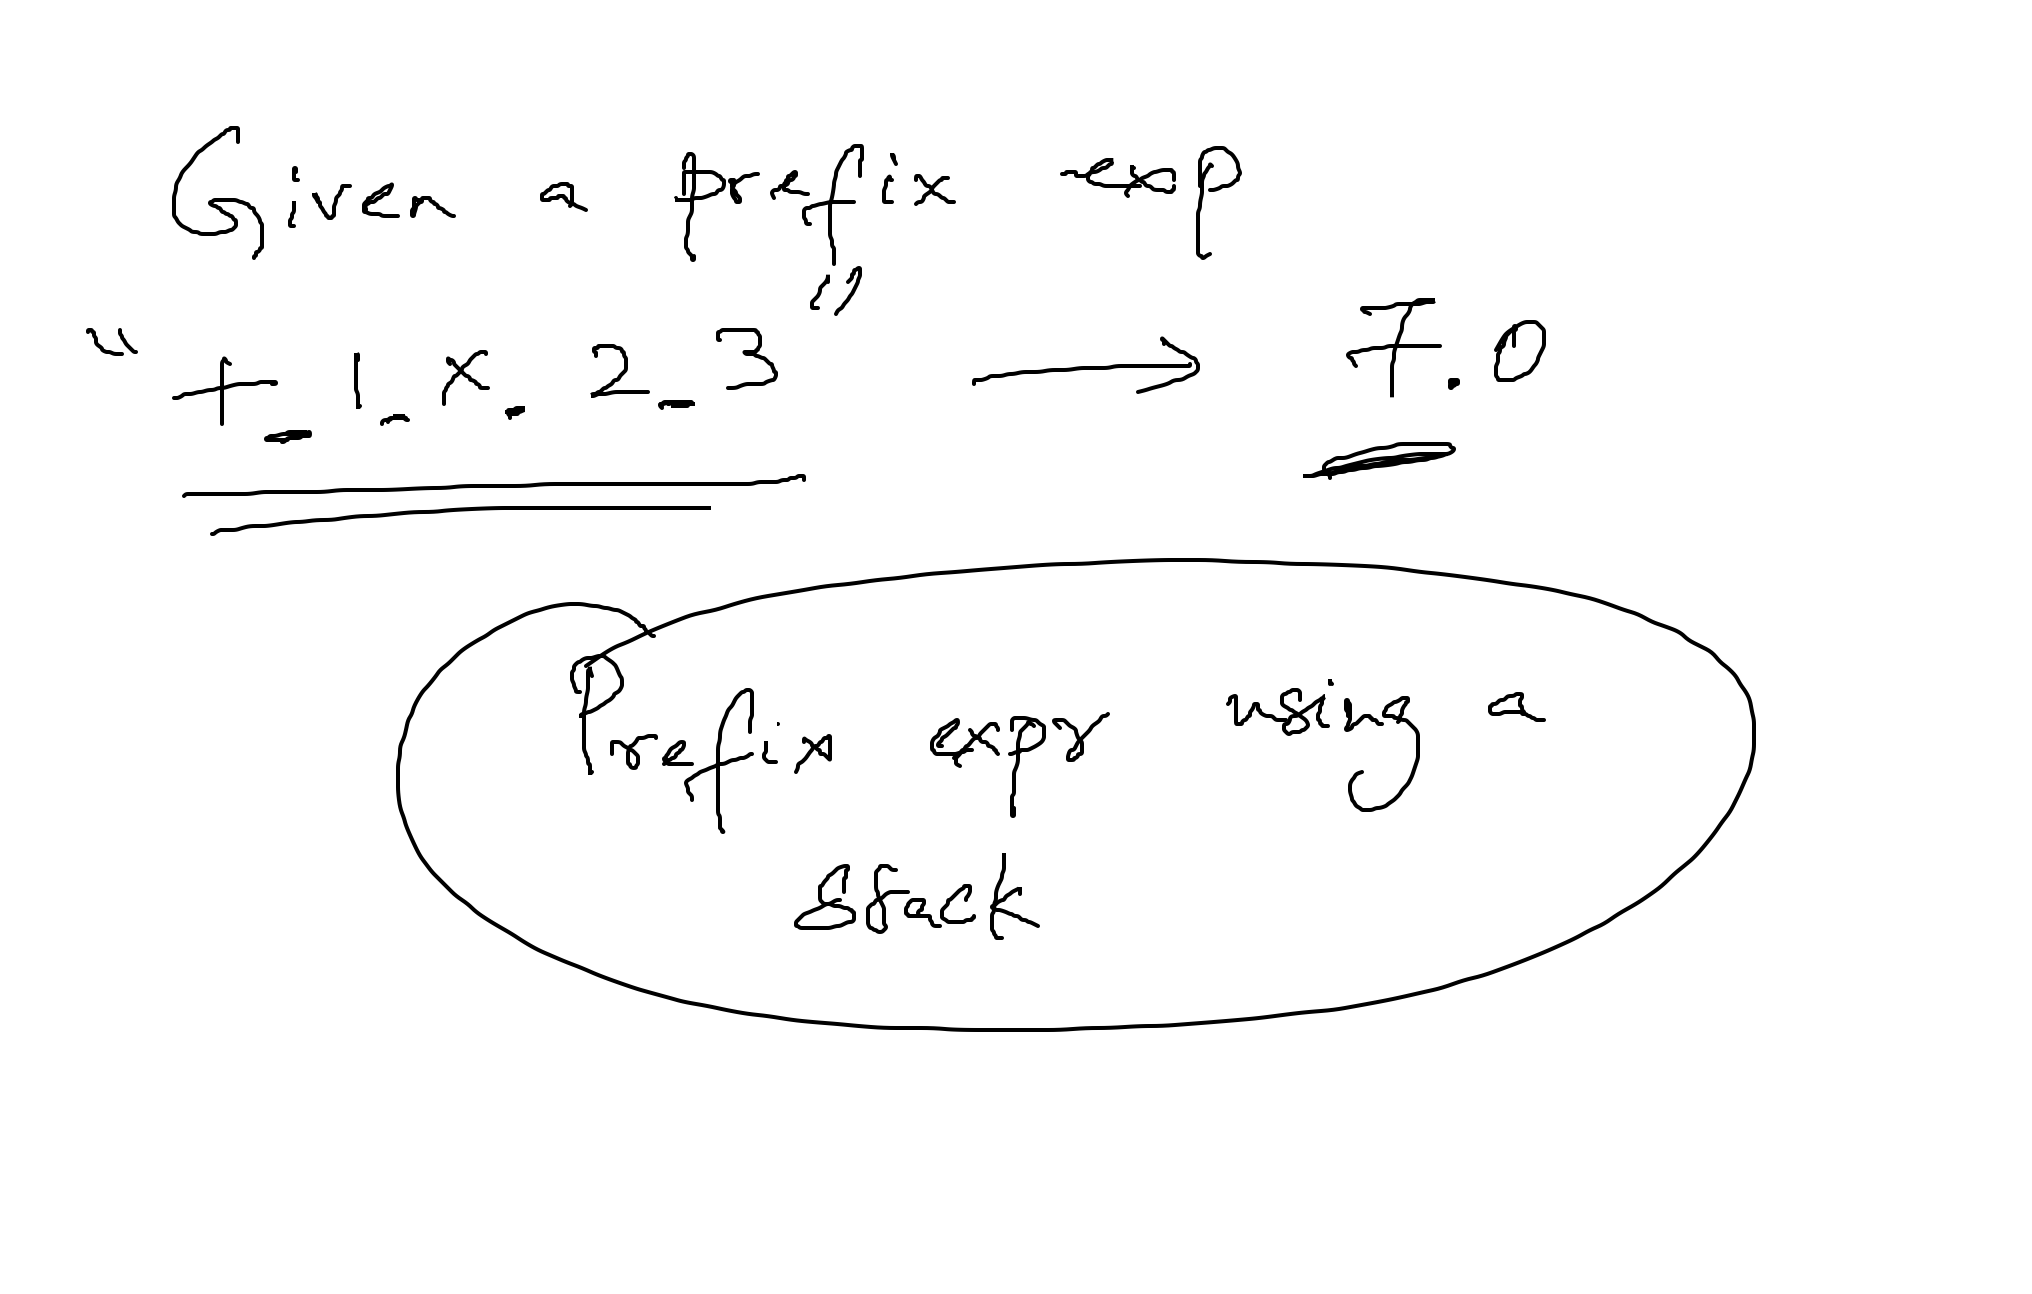 Given a prefix exp
"+_1_x_2_3" → 7.0
Prefix expr using a
Stack